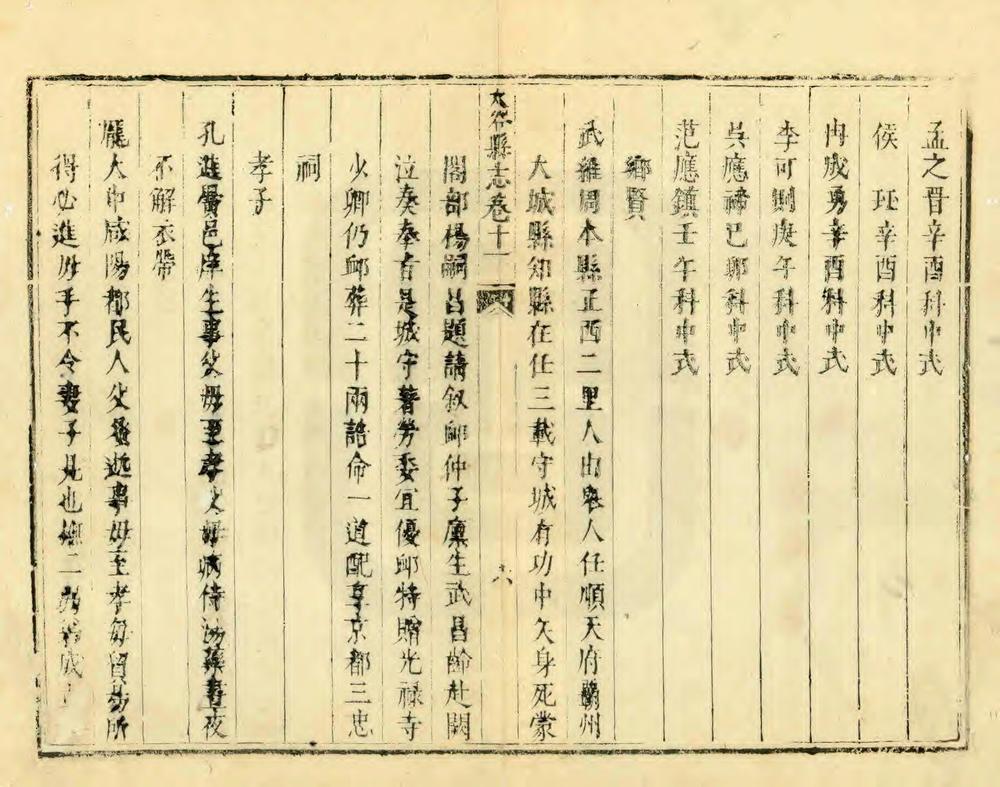 孟之晋辛酉科中式
侯　玨辛酉科中式
冉成勇辛酉科中式
李可𠛬庚午科中式
吳應禘己卯科中式
范應鎮壬午科中式
鄉賢
武維周本縣正西二里人由舉人任順天府蘭州
大城縣知縣在任三載守城有功中矢身死蒙
太谷縣志卷十一　六
閣部楊嗣昌題請叙䘏仲子廪生武昌齡赴闕
泣奏奉旨是城守著勞委宜優䘏特贈光祿寺
少卿仍䘏葬二十兩誥命一道配享京都三忠
祠
孝子
孔進賢邑庠生事父母至孝父母病侍湯藥晝夜
不解衣帶
龎大巾咸陽都民人父蚤逝事母至孝每貿易所
得必進母手不令妻子見也撫二弱弟成